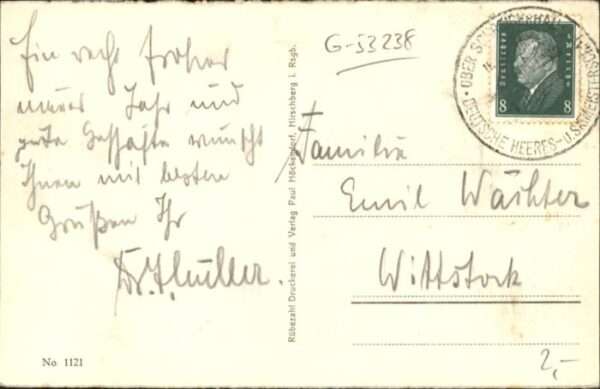 Ein recht frohes
neues Jahr und
gute Geschäfte wünscht
Ihnen mit besten
Grüßen Ihr
G-53238
Rübezahl Druckerei und Verlag Paul Höckendorf, Hirschberg i. Rsgb.
Deutsches Reich
8 8
OBER SCHREIBERHAU
DEUTSCHE HEERES- U. SKIMEISTERSCH
Familie
Emil Wächter
Wittstock
No 1121
2,-